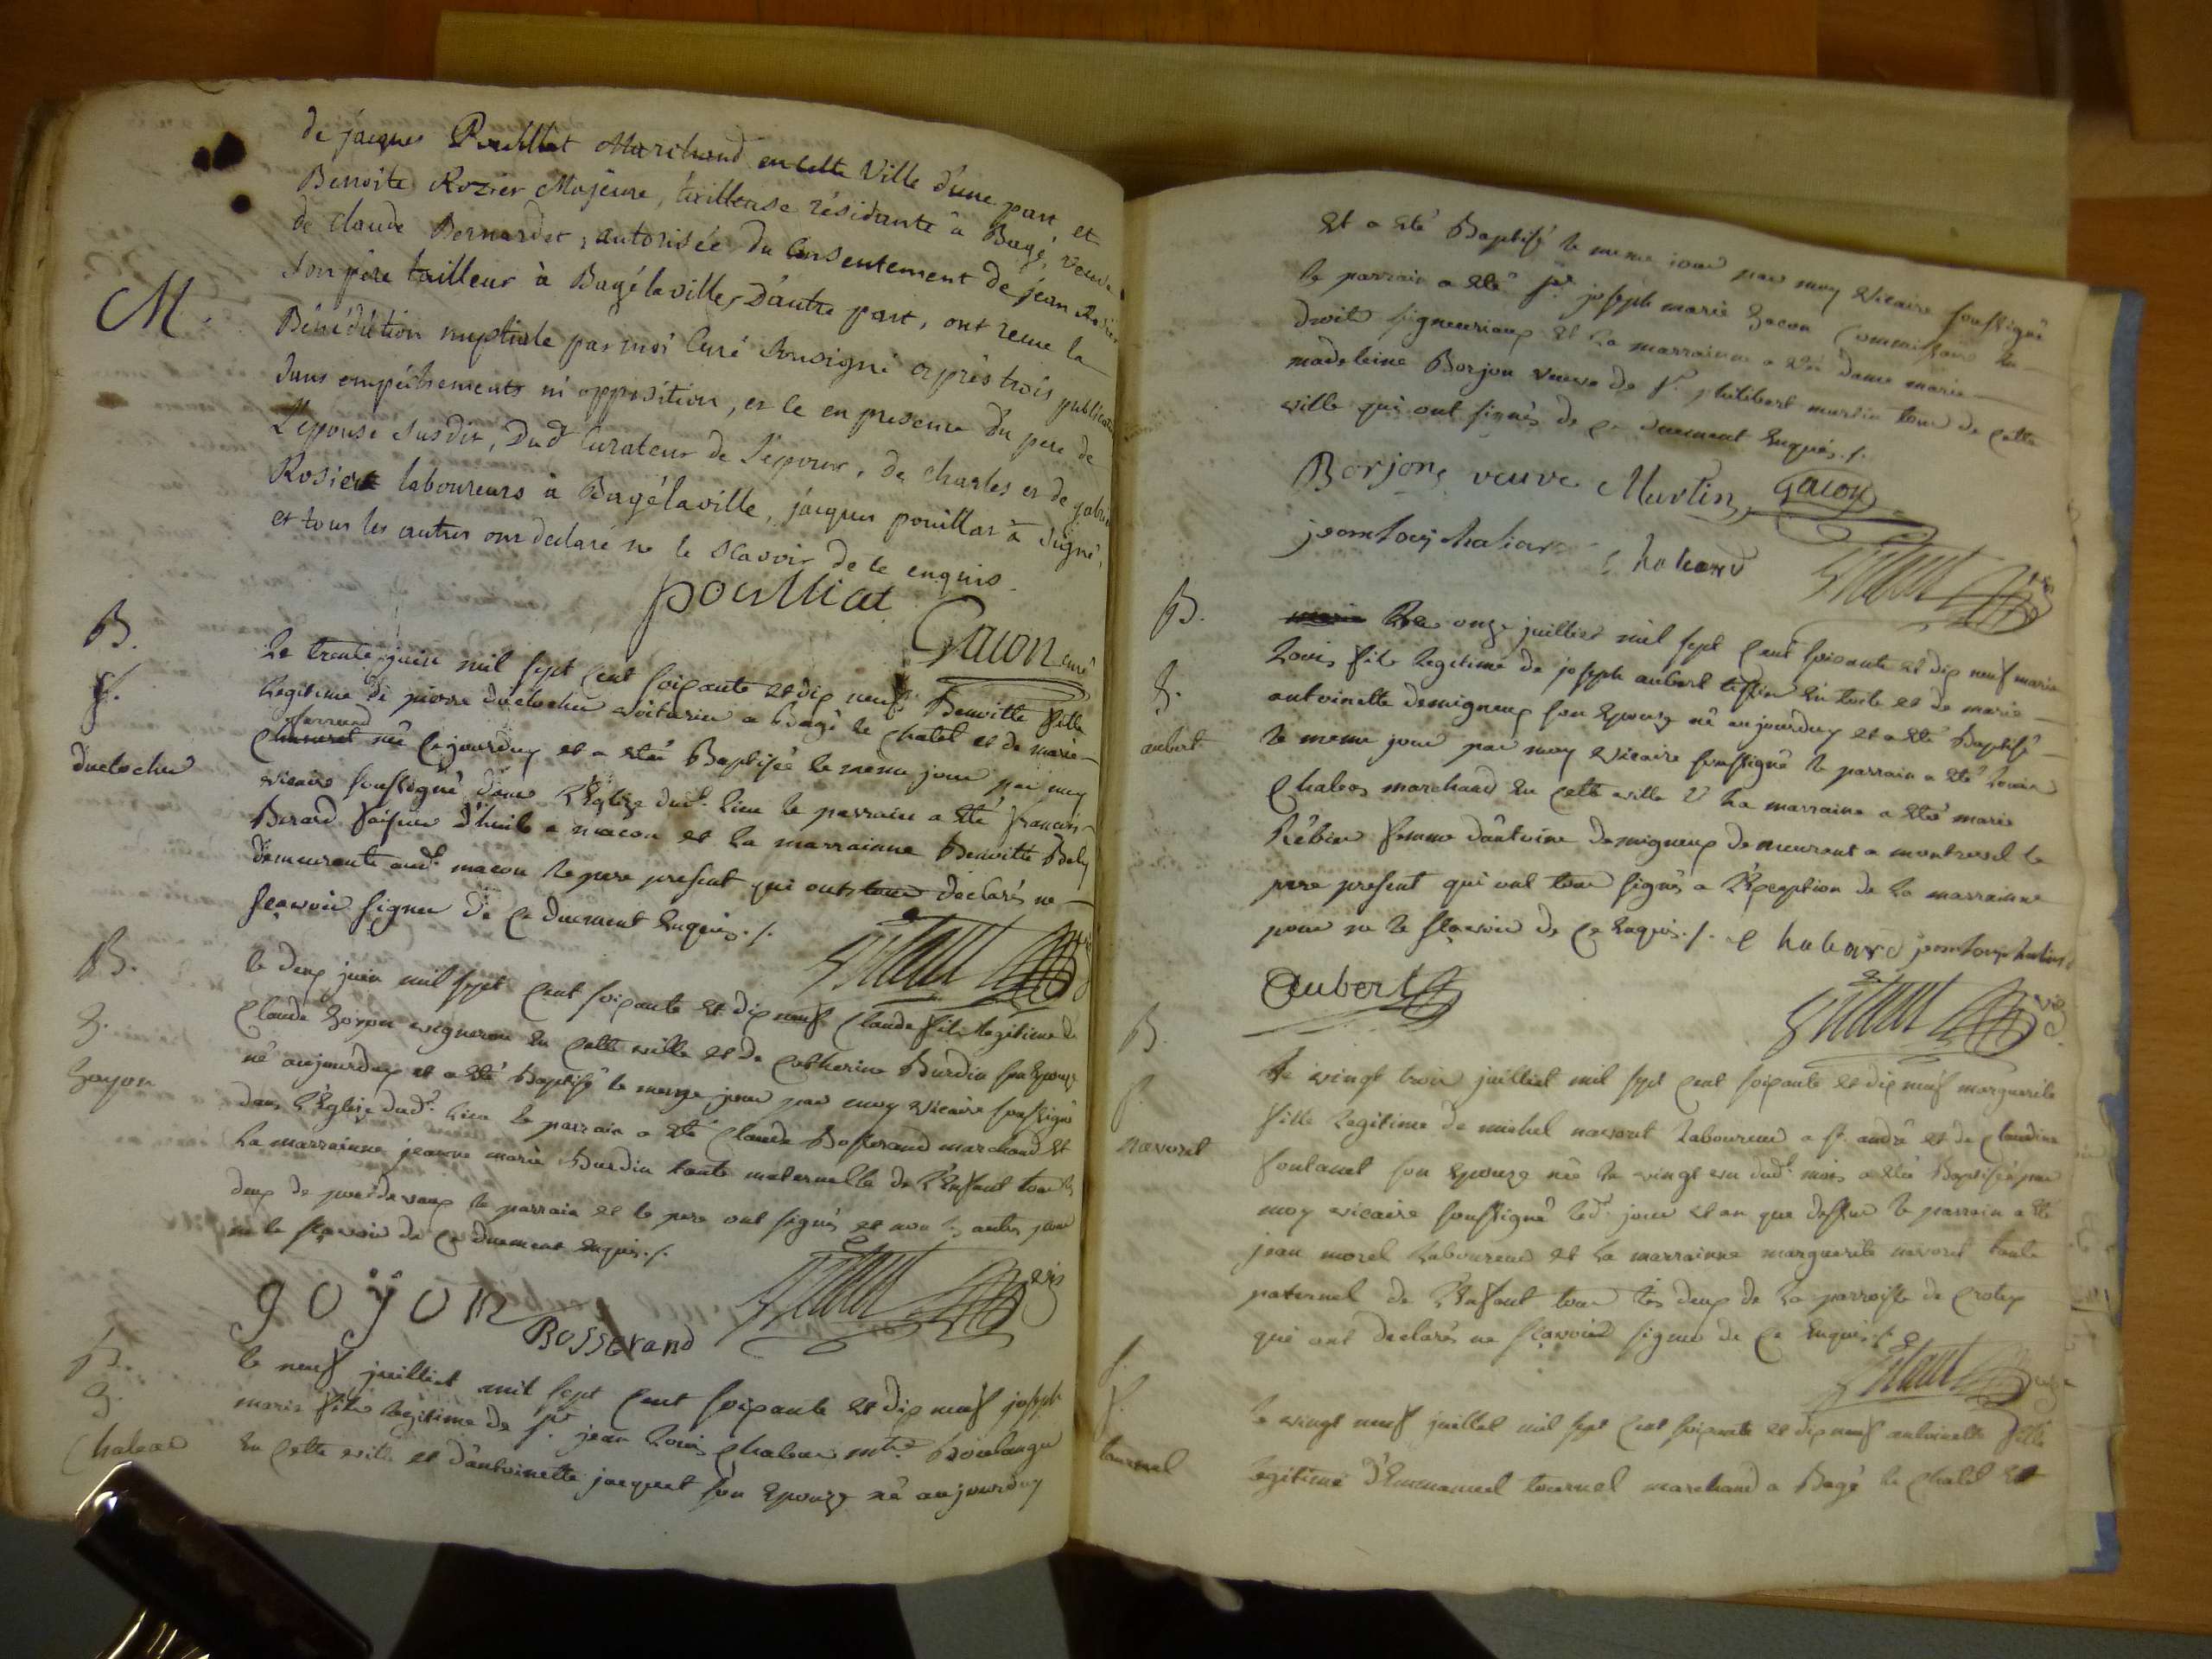 de jacques Pouillat Marchand en cette Ville d'une part et
Benoite Rozier Majeure, tailleuse résidante à Bagé, veuve
de claude Bernardet, autorisée du consentement de jean Rozier
M.
son père tailleur à Bagé la ville, D'autre part, ont reçue la
Bénédiction nuptiale par moi Curé soussigné après trois publications
sans empêchements ni opposition, et ce en presence du pere de
L'epouse susdit, Dud. Curateur de l'epoux, de charles et de
Rosier laboureurs à Bagélaville, jacques pouillat à signé,
et tous les autres ont declaré ne le scavoir de ce enquis.
pouilliat
Gacon curé
B.
f.
ducloche
Le trente juin mil sept cent soixante et dix neuf Benoitte fille
legitime de pierre duclocher voiturier a bagé le chatel et de marie
ferrand née cejourduy et a été Baptisée le meme jour par moy
vicaire soussigné dans l'Eglize dud. lieu le parrain a été francois
Berard faiseur d'huile a macon et la marrainne Benoitte Bely
demeurante aud. macon le pere present qui ont declarés ne
sçavoir signer de ce duement Enquis./.
B.
g.
goyon
le deux juin mil sept cent soixante et dix neuf Claude fils legitime de
Claude goyon vigneron en cette ville et de catherine Burdin son Epouze
né aujourduy et a été Baptisé le meme jour par moy vicaire soussigné
dans l'Eglize dud. lieu le parrain a été Claude Bosserand marchand et
la marrainne jeanne marie Burdin tante maternelle de l'Enfant tous les
deux de le parrain et le pere ont signés et non les autres pour
ne le sçavoir de ce duement enquis./.
goyon
Bosserand
vic
B.
g.
Chabas
le neuf juilliet mil sept cent soixante et dix neuf joseph
marie fils legitime de sr. jean Louis Chabas mtre Boulanger
en cette ville et d'antoinette jacquet son Epouze né aujourduy
Et a été Baptisé le meme jour par moy vicaire soussigné
le parrain a été sr. joseph marie gacon Commissaire en
droits signeuriaux et la marrainne a été dame marie
madeleine Borjon veuve de sr. philibert martin tous de cette
ville qui ont signés de ce duement Enquis./.
Borjon veuve Martin Gacon
jeanlouis chabas Chabard
vic
B.
g.
aubert
Le onze juilliet mil sept cent soixante et dix neuf marie
Louis fils legitime de joseph aubert tissier en toile et de marie
antoinette demigneux son Epouze né aujourduy et a été Baptisé
le meme jour par moy vicaire soussigné le parrain a été louis
Chabas marchand en cette ville & la marraine a été marie
Rebin femme d'antoine demigneux demeurant a montrevel le
pere present qui ont tous signés a l'Exception de la marrainne
pour ne le sçavoir de ce Enquis./. Chabard jeanlouis chabas
Aubert
vic
B.
f.
navoret
le vingt trois juilliet mil sept cent soixante et dix neuf marguerite
fille legitime de michel navoret laboureur a st. andré et de claudine
fontanet son Epouze née le vingt un dud. mois a été Baptisée par
moy vicaire soussigné led. jour et an que dessus le parrain a été
jean morel laboureur et la marrainne marguerite navoret tante
paternel de l'Enfant tous les deux de la parroisse de crotex
qui ont declarés ne sçavoir signer de ce Enquis./.
f.
tournel
le vingt neuf juillet mil sept cent soixante et dix neuf antoinette fille
legitime d'Emmanuel tournel marchand a Bagé le chatel et